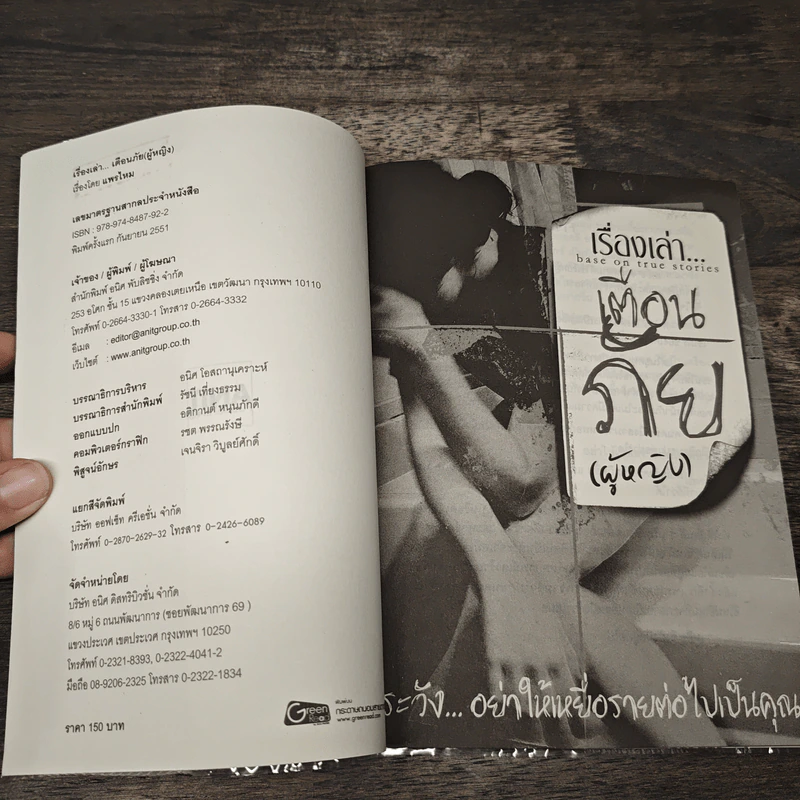 เรื่องเล่า... เตือนภัย(ผู้หญิง)
เรื่องโดย แพรไหม
เลขมาตรฐานสากลประจำหนังสือ
ISBN : 978-974-8487-92-2
พิมพ์ครั้งแรก กันยายน 2551
เจ้าของ / ผู้พิมพ์ / ผู้โฆษณา
สำนักพิมพ์ อนิศ พับลิชชิ่ง จำกัด
253 อโศก ชั้น 15 แขวงคลองเตยเหนือ เขตวัฒนา กรุงเทพฯ 10110
โทรศัพท์ 0-2664-3330-1 โทรสาร 0-2664-3332
อีเมล : editor@anitgroup.co.th
เว็บไซต์ : www.anitgroup.co.th
บรรณาธิการบริหาร อนิศ โอสถานุเคราะห์
บรรณาธิการสำนักพิมพ์ รัชนี เที่ยงธรรม
ออกแบบปก อติกานต์ หนุนภักดี
คอมพิวเตอร์กราฟิก รชต พรรณรังษี
พิสูจน์อักษร เจนจิรา วิบูลย์ศักดิ์
แยกสีจัดพิมพ์
บริษัท ออฟเซ็ท ครีเอชั่น จำกัด
โทรศัพท์ 0-2870-2629-32 โทรสาร 0-2426-6089
จัดจำหน่ายโดย
บริษัท อนิศ ดิสทริบิวชั่น จำกัด
8/6 หมู่ 6 ถนนพัฒนาการ (ซอยพัฒนาการ 69 )
แขวงประเวศ เขตประเวศ กรุงเทพฯ 10250
โทรศัพท์ 0-2321-8393, 0-2322-4041-2
มือถือ 08-9206-2325 โทรสาร 0-2322-1834
ราคา 150 บาท
Green
Read
พิมพ์บน
กระดาษถนอมสายตา
www.greenread.com
เรื่องเล่า...
base on true stories
เตือน
ภัย
(ผู้หญิง)
ระวัง... อย่าให้เหยื่อรายต่อไปเป็นคุณ